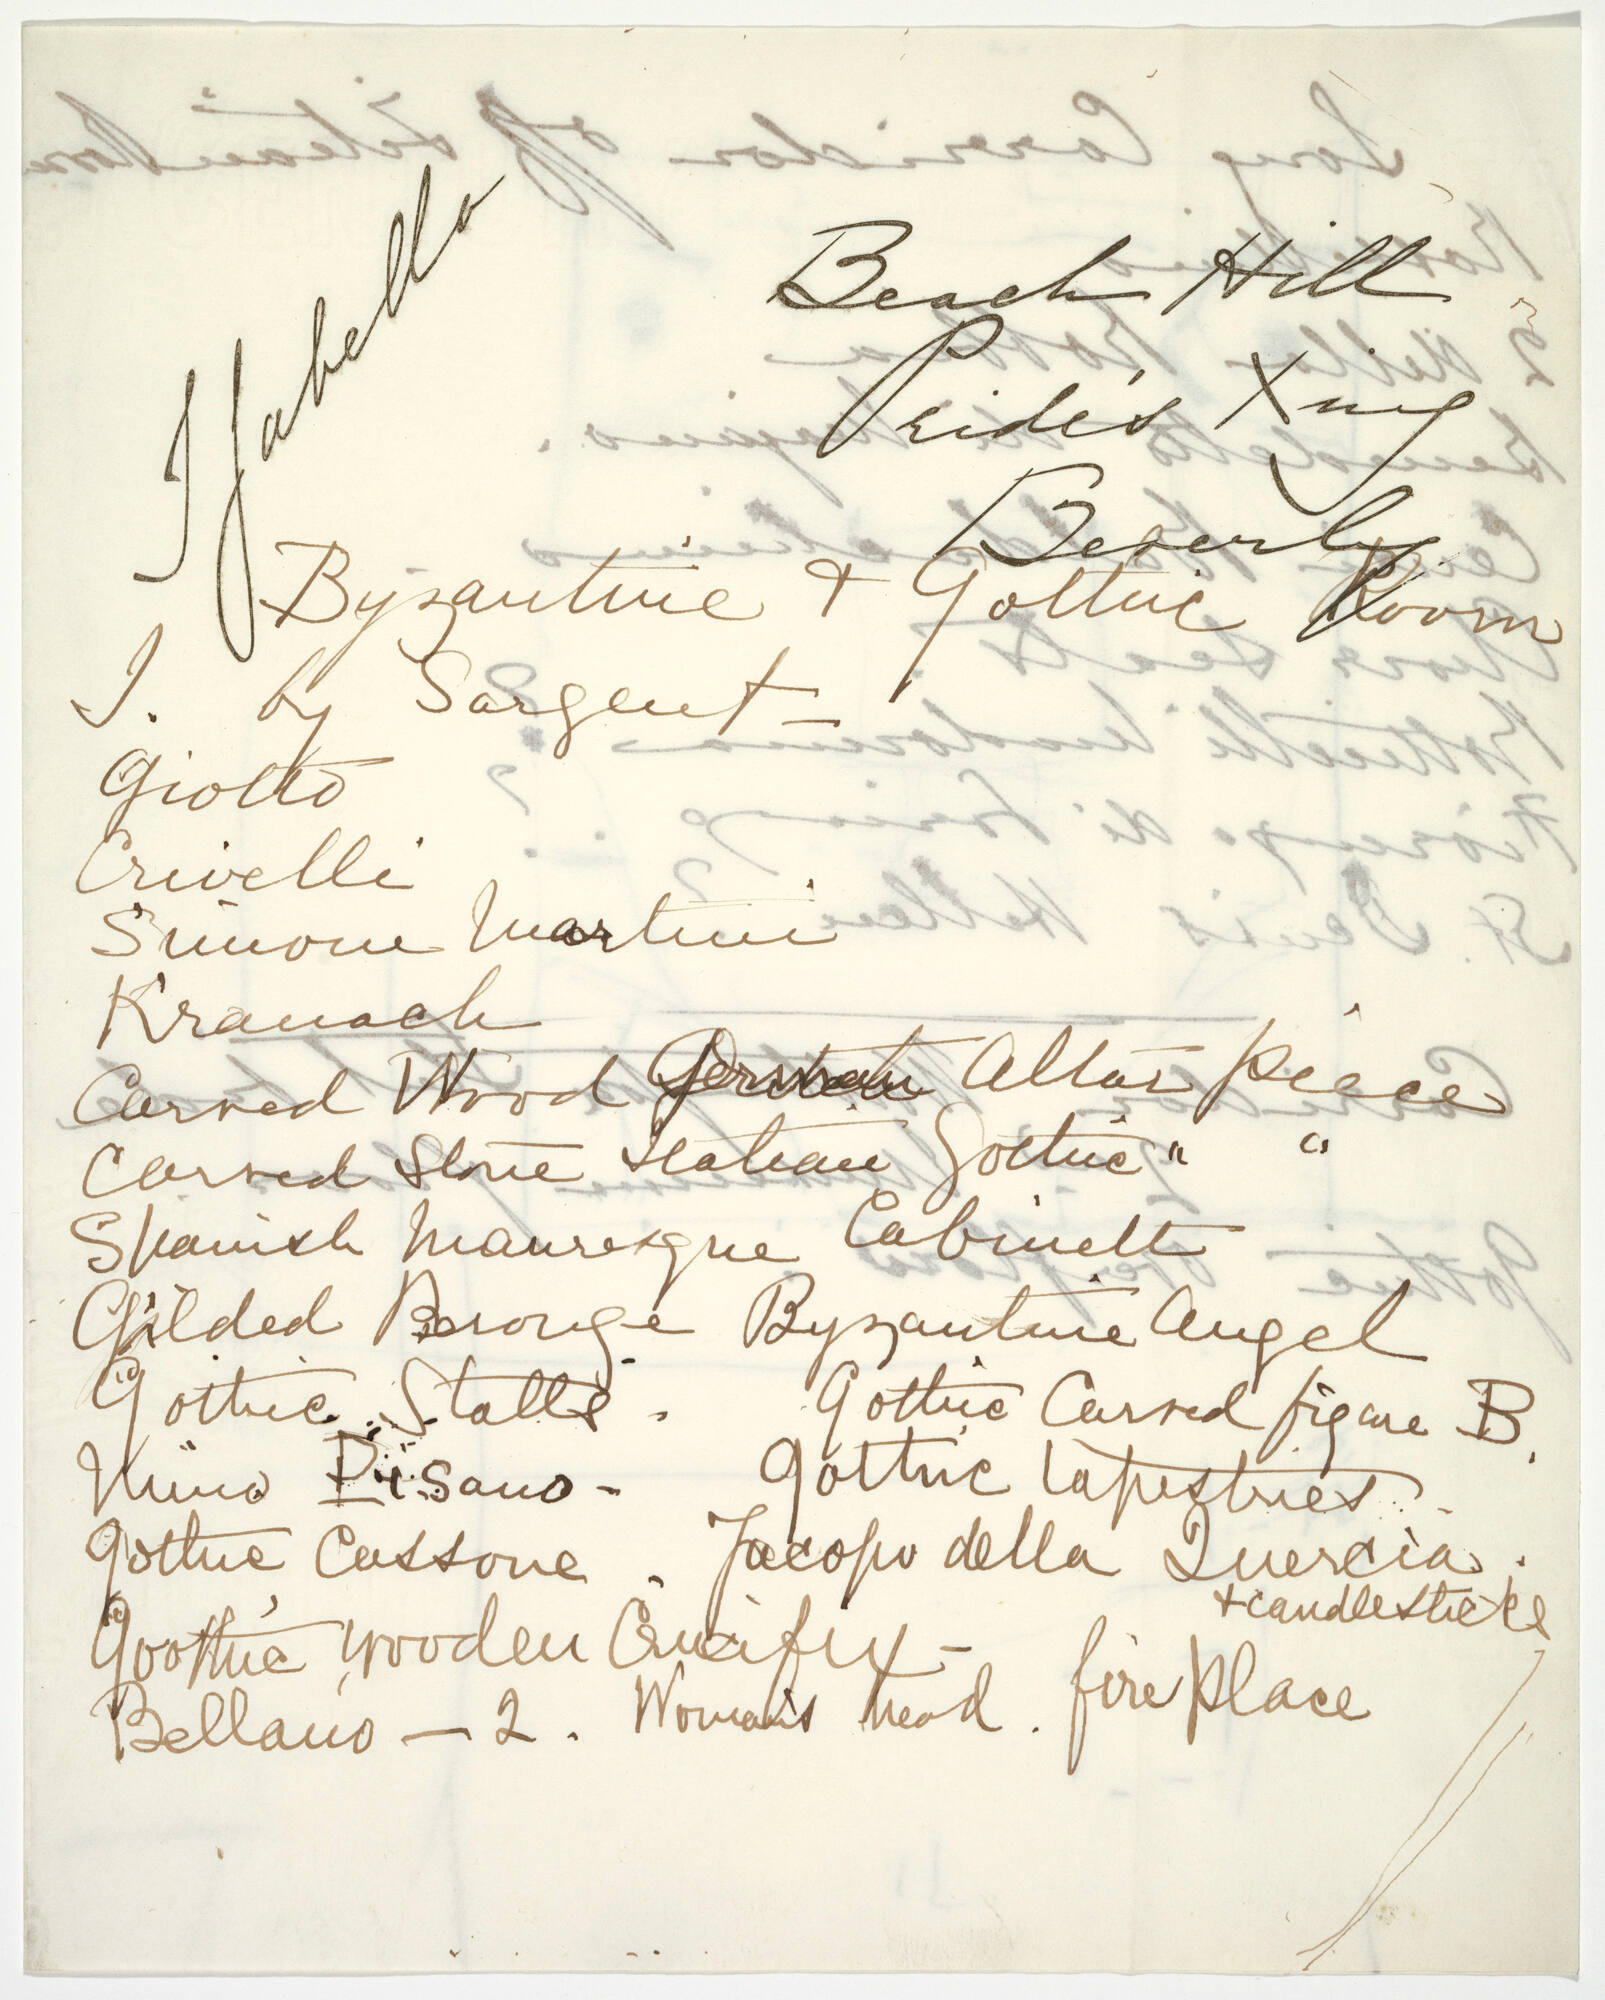 Isabella
Beach Hill
Pride's Xing
Beverly
Byzantine + Gothic Room
I. by Sargent –
Giotto
Crivelli
Simone Martini
Kranach
Carved Wood German Altar piece
Carved stone Italian Gothic " "
Spanish Mauresque Cabinett
Gilded Bronze Byzantine Angel
Gothic Stalls . Gothic Carved figure B.
Nino Pisano - Gothic tapestries .
Gothic Cassone . Jacopo della Quercia .
+ candlesticks
Goothic wooden Crucifix –
Bellano – 2 . Woman's head . fire place